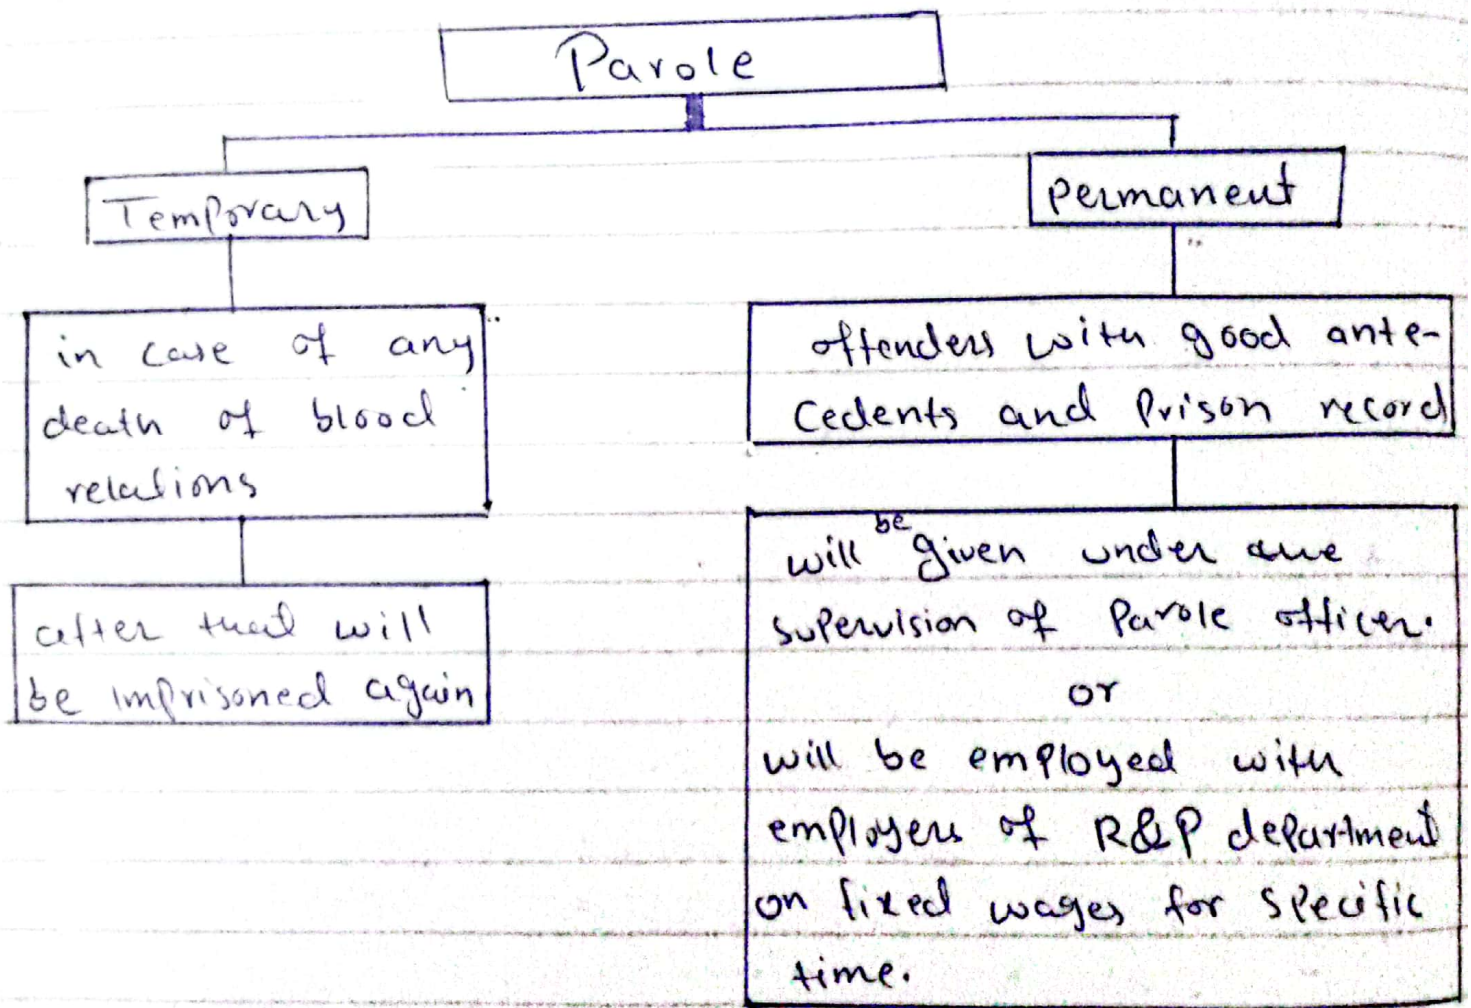 Parole
Temporary
Permanent
in case of any
death of blood
relations
after that will
be imprisoned again
offenders with good ante-
cedents and Prison record
will be given under due
supervision of Parole officer.
or
will be employed with
employers of R&P department
on fixed wages for specific
time.